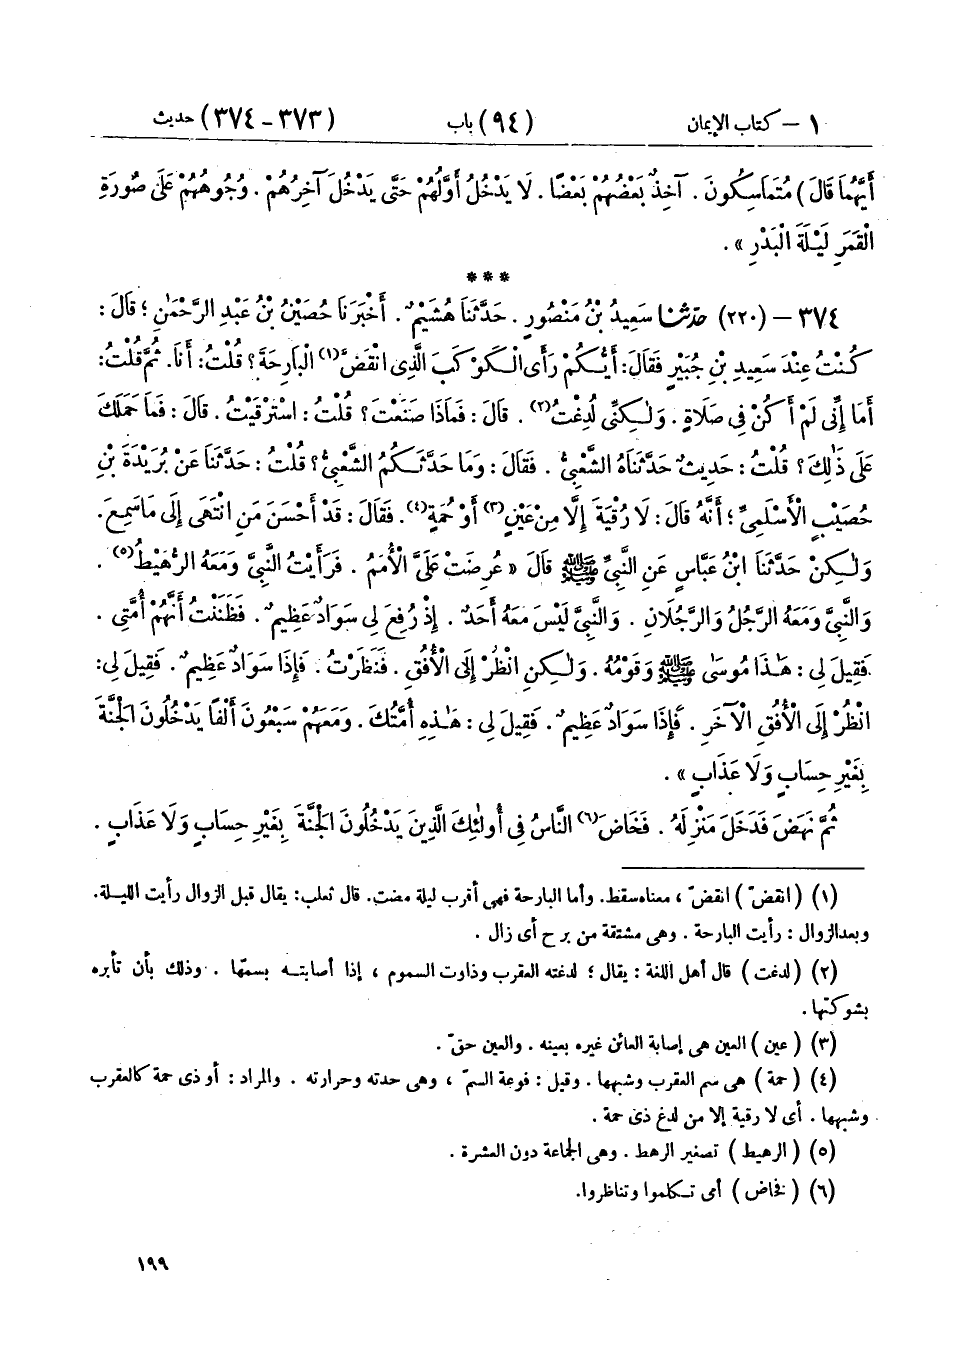 ١ – كتاب الإيمان (٩٤) باب (٣٧٣ – ٣٧٤) حديث
أَيَّهُمَا قَالَ) مُتَمَاسِكُونَ. آخِذٌ بَعْضُهُمْ بَعْضًا. لَا يَدْخُلُ أَوَّلُهُمْ حَتَّى يَدْخُلَ آخِرُهُمْ. وُجُوهُهُمْ عَلَى صُورَةِ
الْقَمَرِ لَيْلَةَ الْبَدْرِ».
***
٣٧٤ – (٢٢٠) حَدَّثَنَا سَعِيدُ بْنُ مَنْصُورٍ. حَدَّثَنَا هُشَيْمٌ. أَخْبَرَنَا حُصَيْنُ بْنُ عَبْدِ الرَّحْمَٰنِ؛ قَالَ:
كُنْتُ عِنْدَ سَعِيدِ بْنِ جُبَيْرٍ فَقَالَ: أَيُّكُمْ رَأَى الْكَوْكَبَ الَّذِي انْقَضَّ(١) الْبَارِحَةَ؟ قُلْتُ: أَنَا. ثُمَّ قُلْتُ:
أَمَا إِنِّي لَمْ أَكُنْ فِي صَلَاةٍ. وَلَٰكِنِّي لُدِغْتُ(٢). قَالَ: فَمَاذَا صَنَعْتَ؟ قُلْتُ: اسْتَرْقَيْتُ. قَالَ: فَمَا حَمَلَكَ
عَلَى ذَٰلِكَ؟ قُلْتُ: حَدِيثٌ حَدَّثَنَاهُ الشَّعْبِيُّ. فَقَالَ: وَمَا حَدَّثَكُمُ الشَّعْبِيُّ؟ قُلْتُ: حَدَّثَنَا عَنْ بُرَيْدَةَ بْنِ
حُصَيْبٍ الْأَسْلَمِيِّ؛ أَنَّهُ قَالَ: لَا رُقْيَةَ إِلَّا مِنْ عَيْنٍ(٣) أَوْ حُمَةٍ(٤). فَقَالَ: قَدْ أَحْسَنَ مَنِ انْتَهَى إِلَى مَا سَمِعَ.
وَلَٰكِنْ حَدَّثَنَا ابْنُ عَبَّاسٍ عَنِ النَّبِيِّ ﷺ قَالَ «عُرِضَتْ عَلَيَّ الْأُمَمُ. فَرَأَيْتُ النَّبِيَّ وَمَعَهُ الرُّهَيْطُ(٥).
وَالنَّبِيَّ وَمَعَهُ الرَّجُلُ وَالرَّجُلَانِ. وَالنَّبِيَّ لَيْسَ مَعَهُ أَحَدٌ. إِذْ رُفِعَ لِي سَوَادٌ عَظِيمٌ. فَظَنَنْتُ أَنَّهُمْ أُمَّتِي.
فَقِيلَ لِي: هَٰذَا مُوسَىٰ ﷺ وَقَوْمُهُ. وَلَٰكِنِ انْظُرْ إِلَى الْأُفُقِ. فَنَظَرْتُ. فَإِذَا سَوَادٌ عَظِيمٌ. فَقِيلَ لِي:
انْظُرْ إِلَى الْأُفُقِ الْآخَرِ. فَإِذَا سَوَادٌ عَظِيمٌ. فَقِيلَ لِي: هَٰذِهِ أُمَّتُكَ. وَمَعَهُمْ سَبْعُونَ أَلْفًا يَدْخُلُونَ الْجَنَّةَ
بِغَيْرِ حِسَابٍ وَلَا عَذَابٍ».
ثُمَّ نَهَضَ فَدَخَلَ مَنْزِلَهُ. فَخَاضَ(٦) النَّاسُ فِي أُولَٰئِكَ الَّذِينَ يَدْخُلُونَ الْجَنَّةَ بِغَيْرِ حِسَابٍ وَلَا عَذَابٍ.
(١) (انقضّ) انقضّ، معناه سقط. وأما البارحة فهى أقرب ليلة مضت. قال ثعلب: يقال قبل الزوال رأيت الليلة.
وبعد الزوال: رأيت البارحة. وهى مشتقة من برح أى زال.
(٢) (لدغت) قال أهل اللغة: يقال؛ لدغته العقرب وذاوت السموم، إذا أصابته بسمّها. وذلك بأن تأبره
بشوكتها.
(٣) (عين) العين هى إصابة العائن غيره بعينه. والعين حقّ.
(٤) (حمة) هى سم العقرب وشبهها. وقيل: فوعة السمّ، وهى حدته وحرارته. والمراد: أو ذى حمة كالعقرب
وشبهها. أى لا رقية إلا من لدغ ذى حمة.
(٥) (الرهيط) تصغير الرهط. وهى الجماعة دون العشرة.
(٦) (فخاض) أى تكلموا وتناظروا.
١٩٩